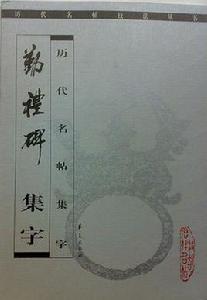 历代名帖技法丛书
勤禮碑
集字
历代名帖集字